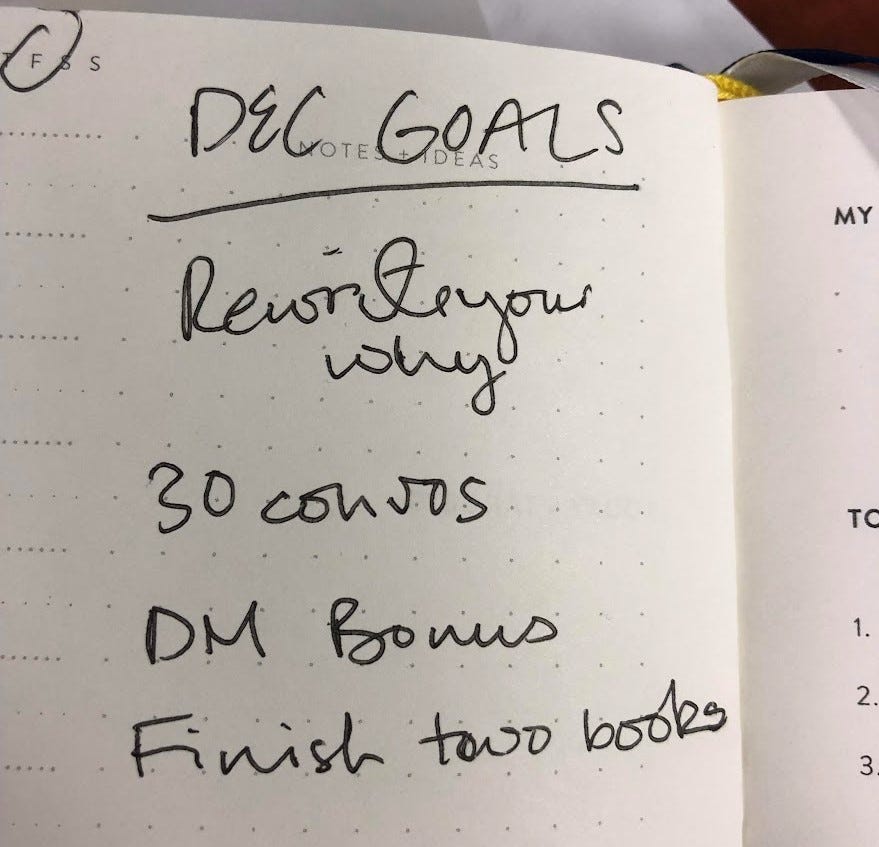 T F S S
DEC GOALS
NOTES + IDEAS
Rewrite your
why
30 convos
DM Bonus
Finish two books
MY
TO
1.
2.
3.